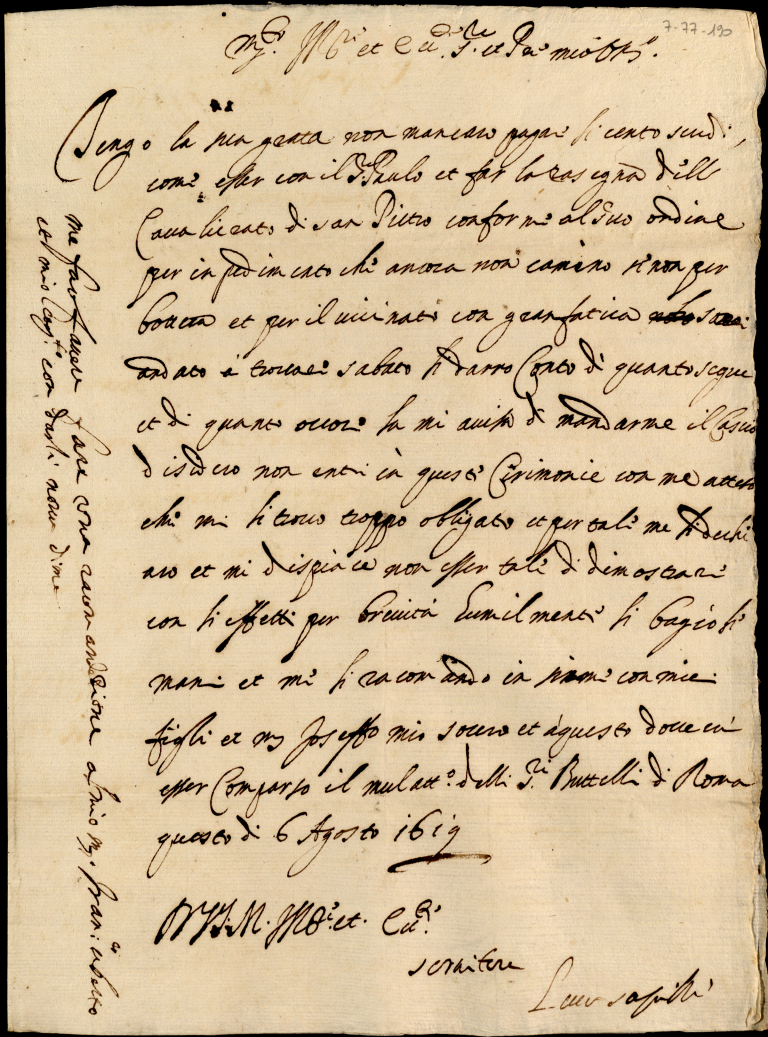 7-77-190
et Ecc. S.re et Pa. mio
Tengo la sua grata non mancaro pagar li cento scudi,
come esser con il S. Paulo et far la rasegna dell
Cavalierato di san Pietro conforme al suo ordine
per inpedimento che ancora non camino se non per
et per il vicinato con gran fatica
andato a trovare sabato li darro Conto di quanto segue
et di quanto ocore la mi avisi di mandarme il Cascio
disidero non entri in queste Cirimonie con me atteso
che mi li trovo troppo obligato et per tale me li dechi
aro et mi dispiace non esser tale di dimostrare
con li effetti per brevità Humilmente li bagio le
mani et me li racomando insieme con miei
figli et Joseffo mio socero et a questo dove
esser Comparso il mulatt.o delli S.ri Buttelli di Roma
questo di 6 Agosto 1619
D V S. M. et Ecc.
servitore
Luca
me favor fare una racomandatione al mio
et mio con darli nova di me